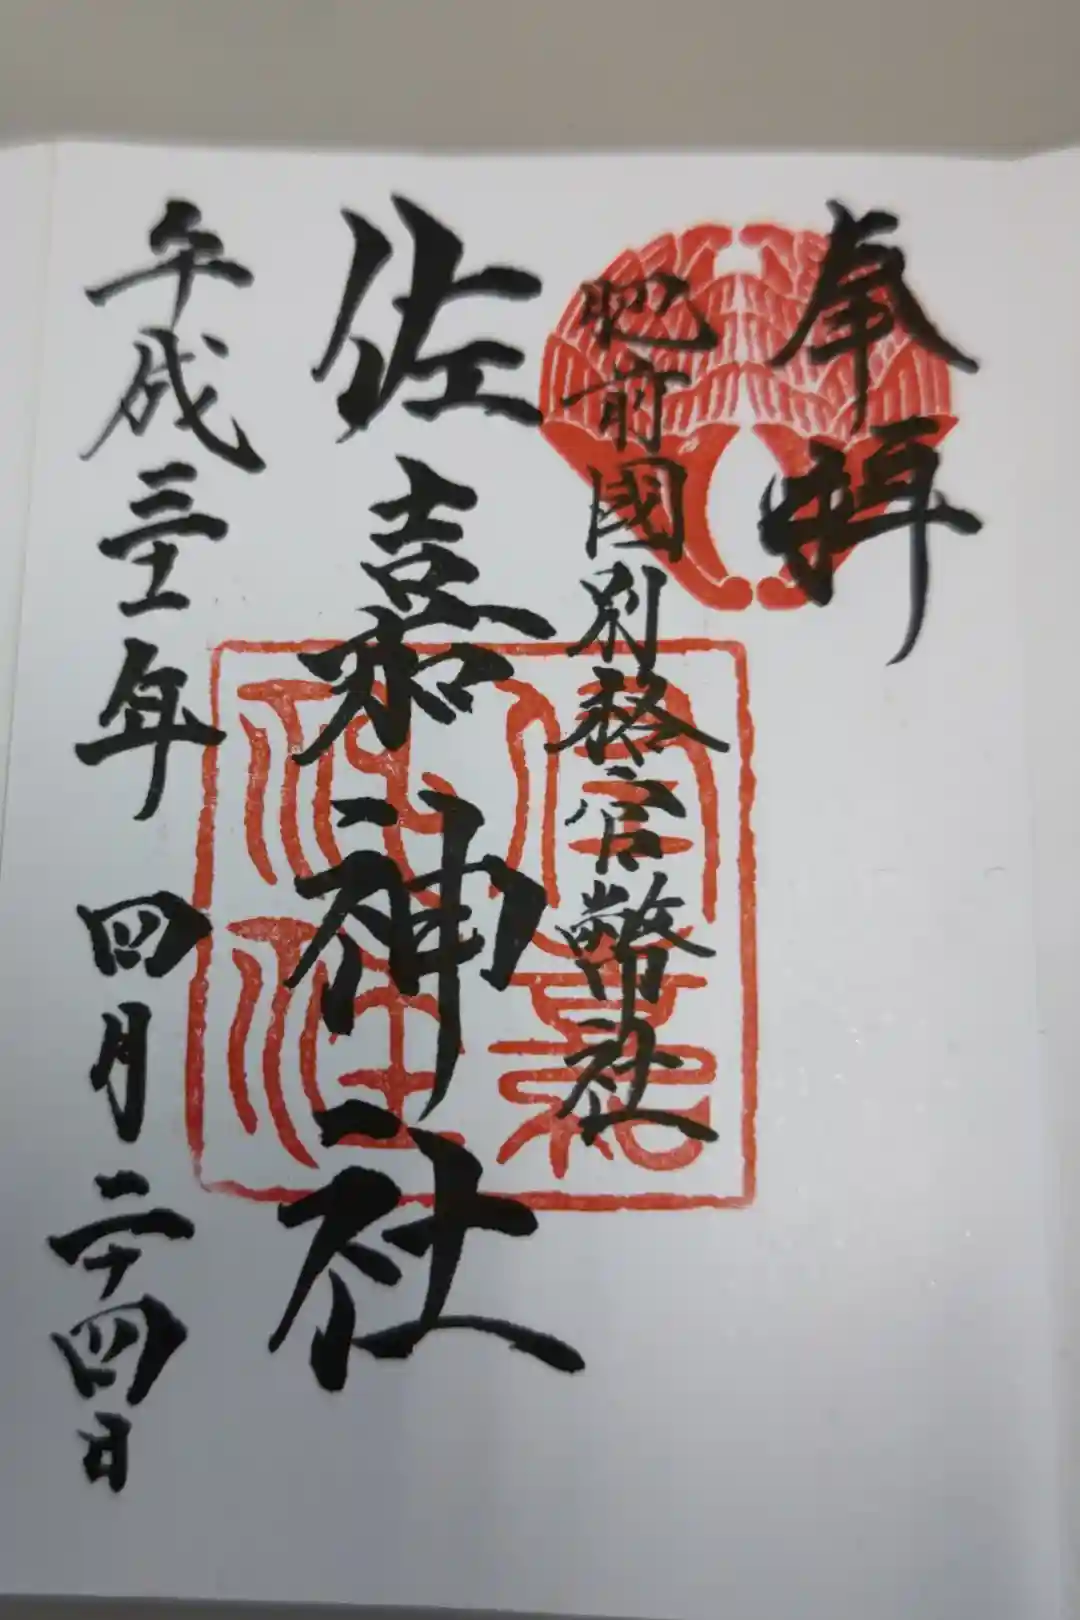 奉拝
肥前國別格官幣社
佐嘉神社
平成三十一年 四月二十四日